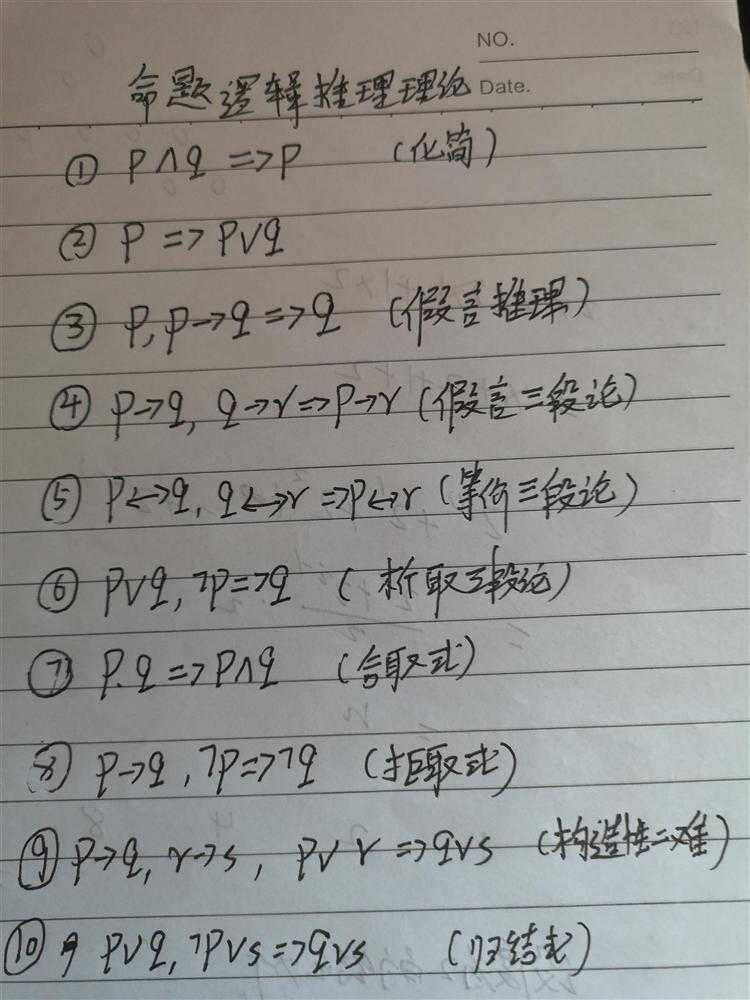 NO.
命题逻辑推理理论 Date.
① P∧q => P (化简)
② P => P∨q
③ P, P→q => q (假言推理)
④ P→q, q→r => P→r (假言三段论)
⑤ P↔q, q↔r => P↔r (等价三段论)
⑥ P∨q, ¬P => q (析取三段论)
⑦ P.q => P∧q (合取式)
⑧ P→q, ¬P => ¬q (拒取式)
⑨ P→q, r→s, P∨r => q∨s (构造性二难)
⑩ P∨q, ¬P∨s => q∨s (归结式)